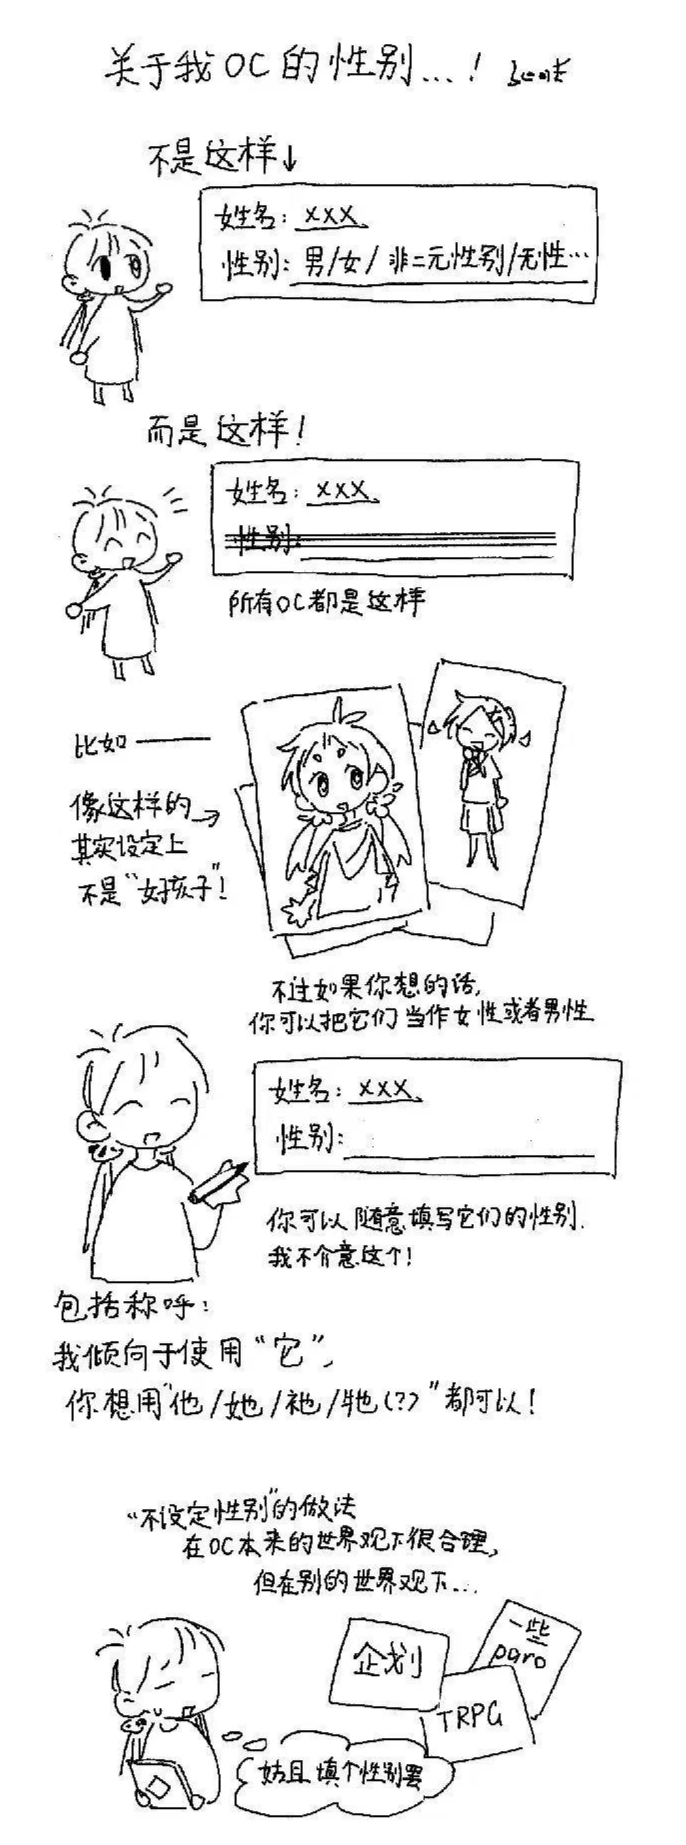 关于我OC的性别...！
不是这样↓
姓名：xxx.
性别：男/女/非二元性别/无性…
而是这样！
姓名：xxx.
性别：
所有OC都是这样
比如——
像这样的→
其实设定上
不是“女孩子”！
不过如果你想的话,
你可以把它们当作女性或者男性
姓名：xxx.
性别：
你可以随意填写它们的性别.
我不介意这个！
包括称呼：
我倾向于使用“它”,
你想用“他/她/祂/牠(?)”都可以！
“不设定性别”的做法
在OC本来的世界观下很合理,
但在别的世界观下...
企划
一些
paro
TRPG
姑且填个性别罢